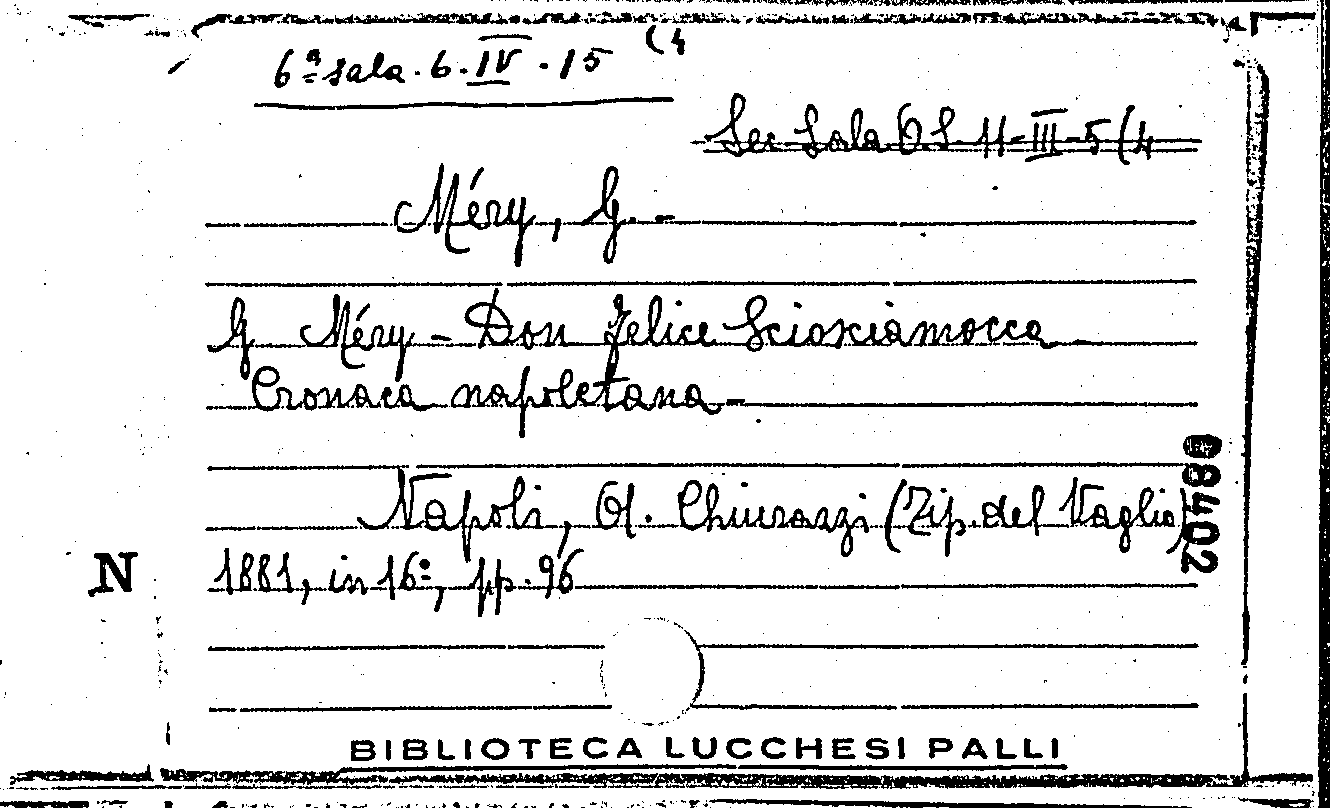 6ª sala. 6. IV. 15 (4
Sec Sala O.S. 11-III-5(4
Méry, G. -
G Méry - Don Felice Scioskiamocca -
Cronaca napoletana -
Napoli, A. Chiurazzi (Tip. del Vaglio)
1881, in 16º, pp. 96
N
08402
BIBLIOTECA LUCCHESI PALLI